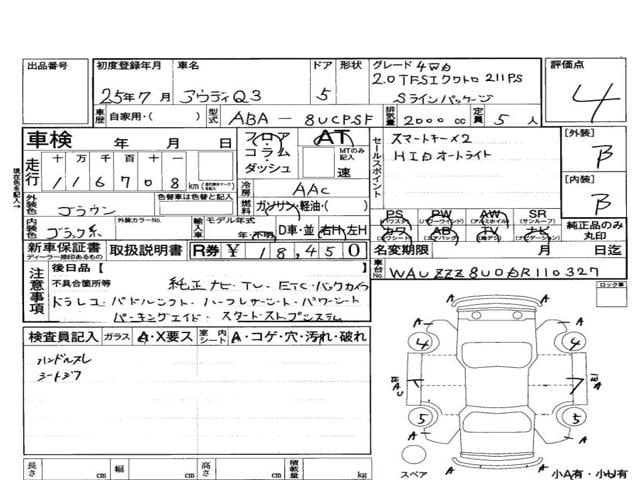 出品番号 初度登録年月 車名 ドア 形状 グレード 4WD 評価点
25年7月 アウディQ3 5 2.0TFSIクワトロ 211PS 4
Sラインパッケージ
車歴 自家用・( ) 型式 ABA-8UCPSF 排気量 2000cc 定員 5人
車検 年 月 日 フロア・コラム・ダッシュ AT MTのみ記入 速 セールスポイント スマートキー×2 [外装] B
HIDオートライト
走行 十万千百十 116708 km 冷房 AAC [内装] B
現在色を記入→
外装色 ブラウン 色替車は色替と記入 燃料 ガソリン・軽油・( )
内装色 ブラック系 外装カラーNo. 輸入車記入 モデル年式 年・不明 D車・並 右H・左H
PS PW AW SR
(パワステ) (パワーウインド) (アルミホイル) (サンルーフ)
カワ AB TV ナビ
(エアバック) (地デジ) (ナビゲーション)
純正品のみ丸印
新車保証書 取扱説明書 R券 ¥18,450 名変期限 月 日迄
ディーラー捺印あるもの
注意事項 後日品【 】 車台No. WAUZZZ8U0DR110327
ロック車
不具合箇所等 純正ナビ・TV・ETC・バックカメラ
ドラレコ・パドルシフト・ハーフレザーシート・パワーシート
パーキングエイド・スタートストップシステム
検査員記入 ガラス A・X要ス 室内シート A・コゲ・穴・汚れ・破れ
ハンドルスレ
シートシワ
A A
4 4
A
U
7
5 5
A A
A
スペア 小A有・小U有
長さ cm 幅 cm 高さ cm 積載量 kg